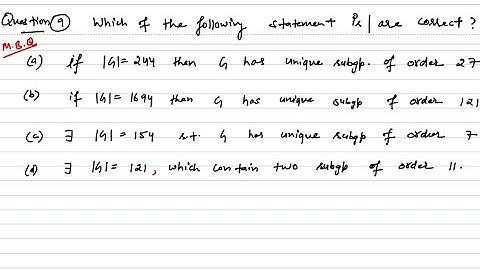 Question 9 Which of the following statement is/are correct?
M.S.Q
(a) if |G|=244 then G has unique subgp. of order 27
(b) if |G|=1694 then G has unique subgp of order 121
(c) ∃ |G|=154 s.t. G has unique subgp of order 7
(d) ∃ |G|=121, which contain two subgp of order 11.